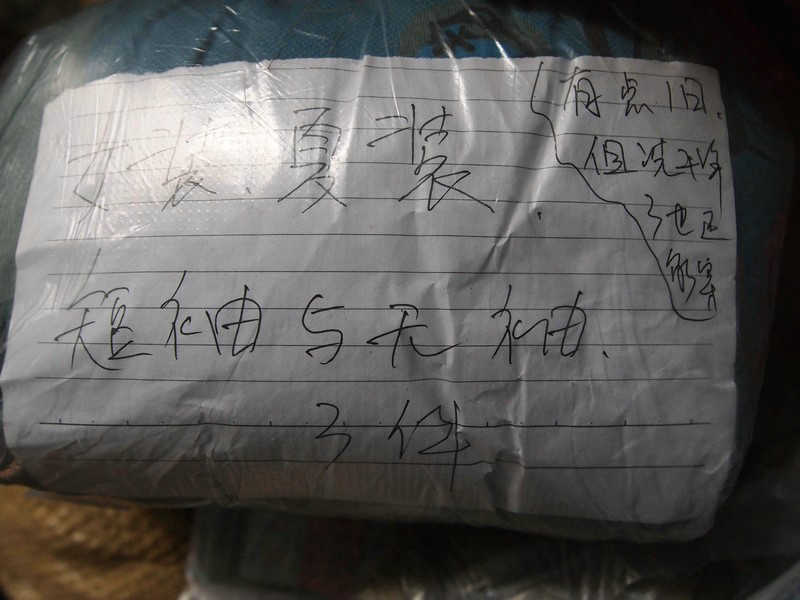 女装.夏装.
短袖与无袖.
3件
有点旧.
但洗干净
了也
能穿